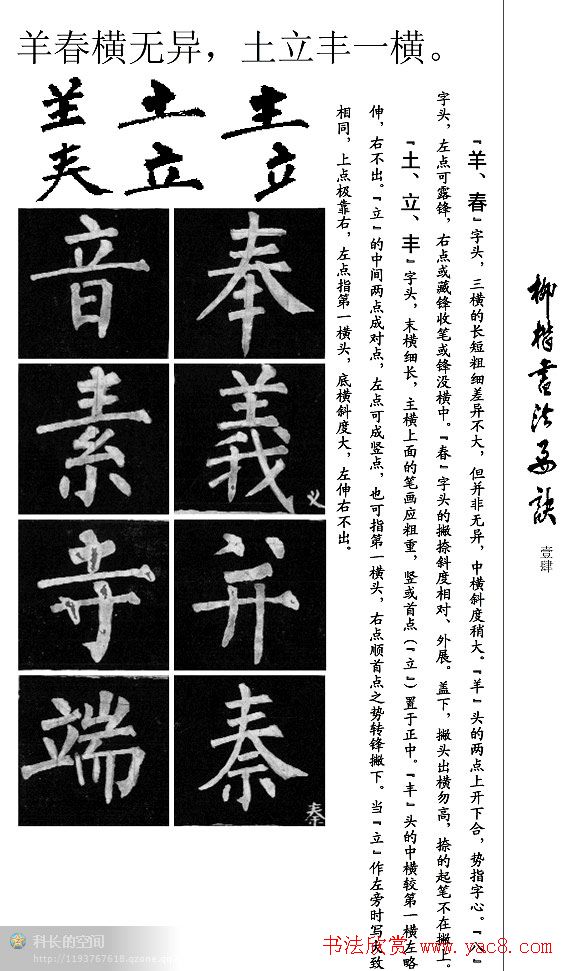 羊春横无异，土立丰一横。
柳楷書法要訣
壹肆
『羊、春』字头，三横的长短粗细差异不大，但并非无异，中横斜度稍大。『羊』头的两点上开下合，势指字心。『八』
字头，左点可露锋，右点或藏锋收笔或锋没横中。『春』字头的撇捺斜度相对、外展。盖下，撇头出横勿高，捺的起笔不在撇上。
『土、立、丰』字头，末横细长，主横上面的笔画应粗重，竖或首点（『立』）置于正中。『丰』头的中横较第一横左略
伸，右不出。『立』的中间两点成对点，左点可成竖点，也可指第一横头，右点顺首点之势转锋撇下。当『立』作左旁时写法大致
相同，上点极靠右，左点指第一横头，底横斜度大，左伸右不出。
土
立 立
奉 音
義 素
义
并 寺
秦 端
秦
科长的空间
http://1193767618.qzone.qq.com
书法欣赏 www.yac8.com